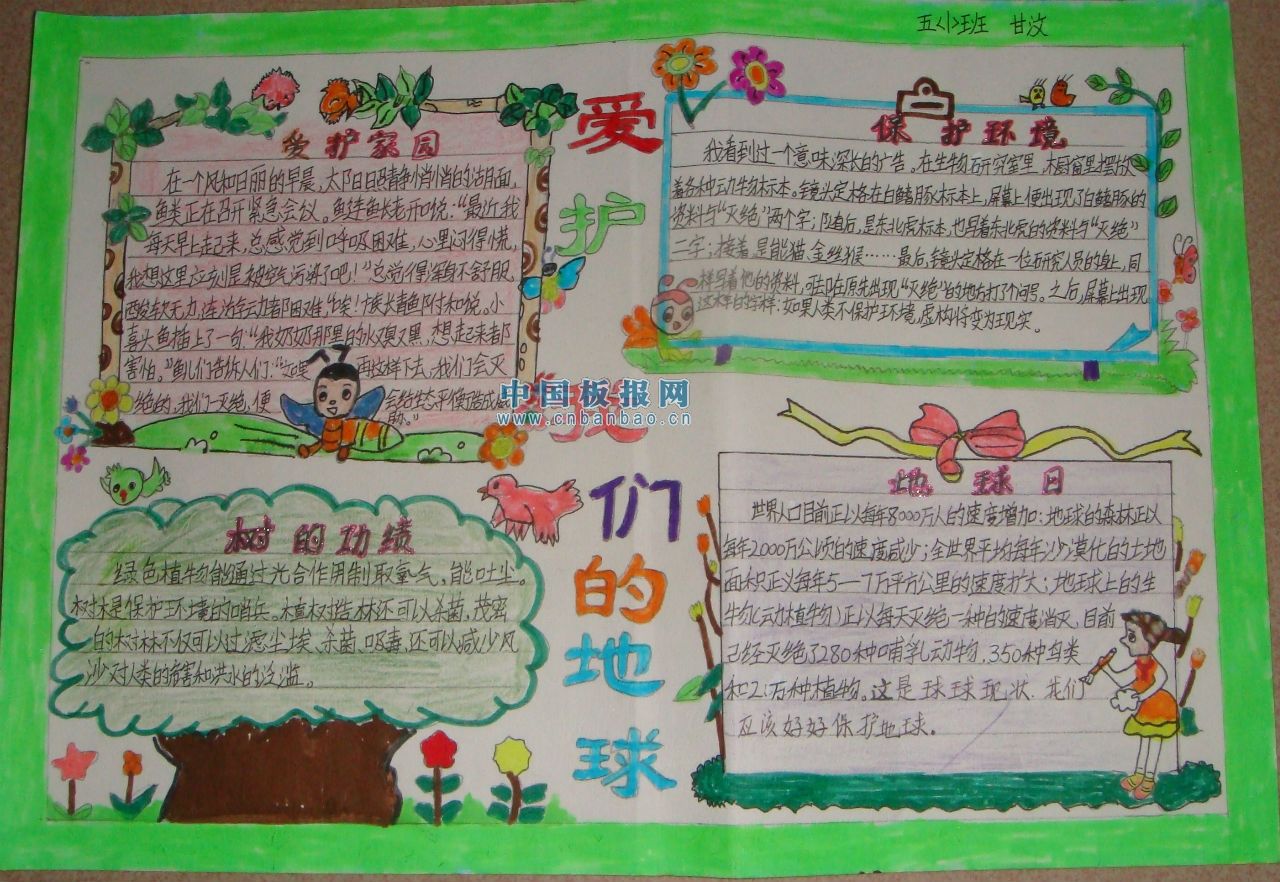 五〈1〉班 甘汶
爱护我们的地球
爱护家园
在一个风和日丽的早晨,太阳日照静悄悄的湖面,
鱼类正在召开紧急会议。鱼连鱼长老开口说:“最近我
每天早上走起来,总感觉到呼吸困难,心里闷得慌,
我想这里应该是被空气污染了吧!”总觉得浑身不舒服,
四肢软无力,连游运动者阳困难,“唉!”族长青鱼附和说。小
喜头鱼插上了一句“我奶奶那里的水又臭又黑,想起来都
害怕。”鱼儿们告诉人们:“这里 再这样下去,我们会灭
绝的,我们一灭绝,便 会给生态平衡造成威
胁。”
中国板报网
www.cnbanbao.cn
保护环境
我看到过一个意味深长的广告。在生物研究室里,橱窗里摆放
着各种动物标本。镜头定格在白鳍豚标本上,屏幕上便出现了白鳍豚的
资料与“灭绝”两个字;随后,是东北虎标本,也写着东北虎的资料与“灭绝”
二字;接着,是熊猫、金丝猴……最后,镜头定格在一位研究人员的身上,同
样写着他的资料,可却在原先出现“灭绝”的地方打了个问号。之后,屏幕上出现
这样的字样:如果人类不保护环境,虚构将变为现实。
树的功绩
绿色植物能通过光合作用制取氧气,能吐尘。
树木是保护环境的哨兵。植树造林还可以杀菌,茂密
的树林不仅可以过滤尘埃、杀菌、吸毒,还可以减少风
沙对人类的危害和洪水的泛滥。
地球日
世界人口目前正以每年8000万人的速度增加;地球的森林正以
每年2000万公顷的速度减少;全世界平均每年沙漠化的土地
面积正义每年5—7万平方公里的速度扩大;地球上的生
物(动植物)正以每天灭绝一种的速度消灭,目前
已经灭绝了280种哺乳动物,350种鸟类
和2.1万种植物。这是球球现状,我们
应该好好保护地球。